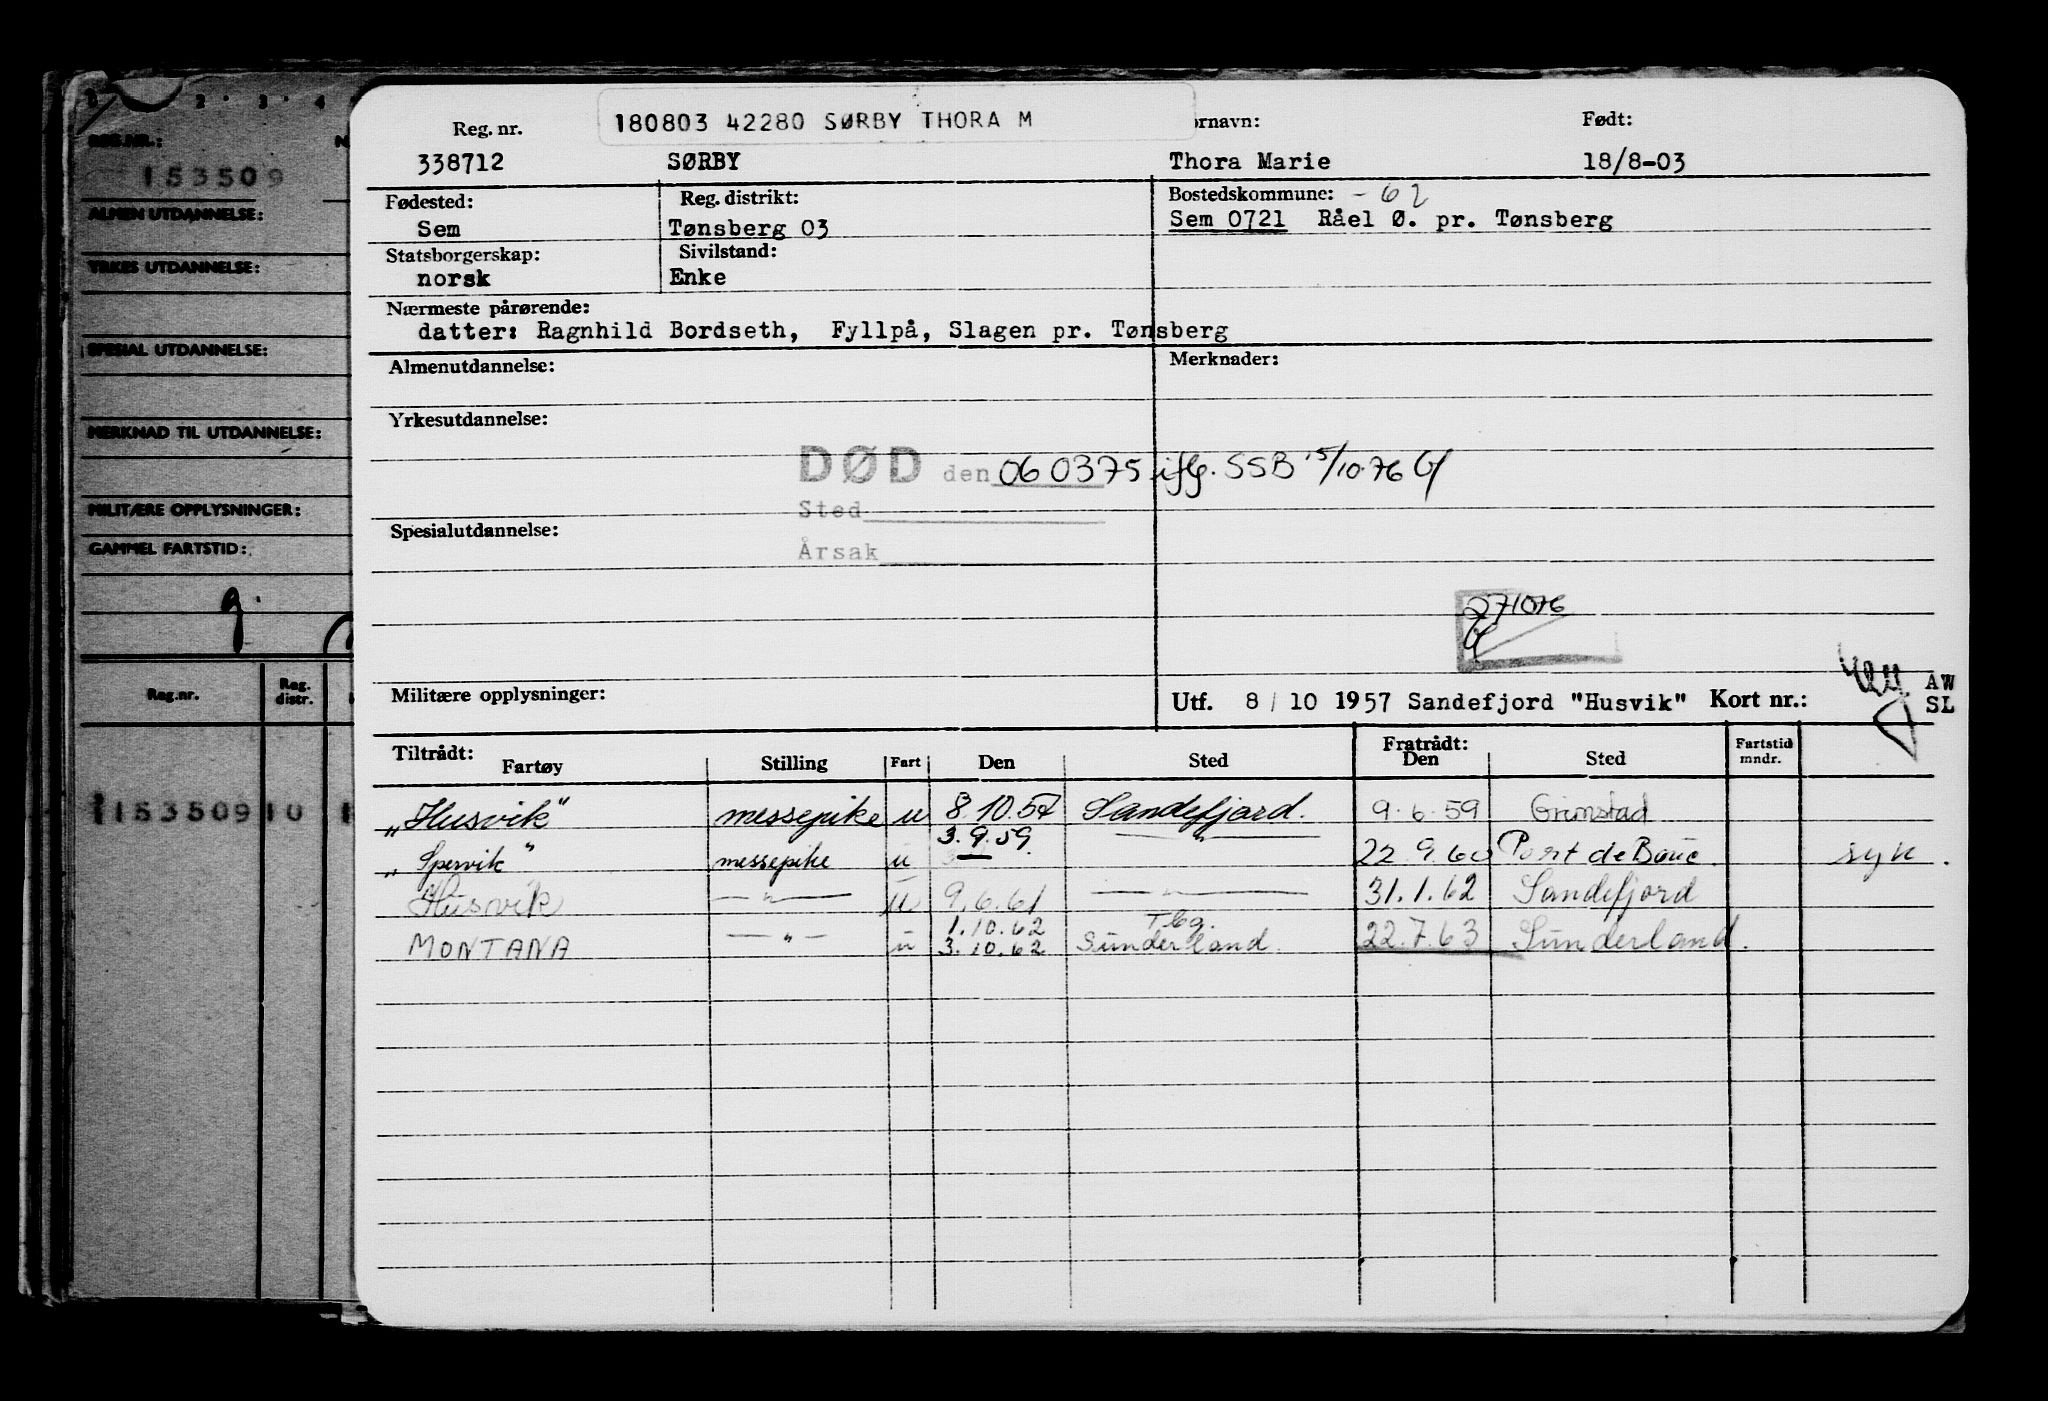 1 2 3 4
REG.NR.: N
153509
ALMEN UTDANNELSE:
YRKES UTDANNELSE:
SPESIAL UTDANNELSE:
MERKNAD TIL UTDANNELSE:
MILITÆRE OPPLYSNINGER:
GAMMEL FARTSTID:
g.
Reg.nr. Reg. distr.
153509 10
180803 42280 SØRBY THORA M
Reg. nr. ornavn: Født:
338712 SØRBY Thora Marie 18/8-03
Fødested: Reg. distrikt: Bostedskommune: -62
Sem Tønsberg 03 Sem 0721 Råel Ø. pr. Tønsberg
Statsborgerskap: Sivilstand:
norsk Enke
Nærmeste pårørende:
datter: Ragnhild Bordseth, Fyllpå, Slagen pr. Tønsberg
Almenutdannelse: Merknader:
Yrkesutdannelse:
DØD den 060375 iflg. SSB 15/10-76
Sted
Spesialutdannelse:
Årsak
271076
Militære opplysninger: Utf. 8/10 1957 Sandefjord "Husvik" Kort nr.: AW
SL
Tiltrådt: Fratrådt:
Fartøy Stilling Fart Den Sted Den Sted Fartstid mndr.
„Husvik" messepike u 8.10.57 Sandefjord. 9.6.59 Grimstad
„Spervik" messepike u 3.9.59. — " — 22.9.60 Port de Bouc syk.
Husvik — " — u 9.6.61 — " — 31.1.62 Sandefjord
1.10.62 Tbg.
MONTANA — " — u 3.10.62 Sunderland. 22.7.63 Sunderland.